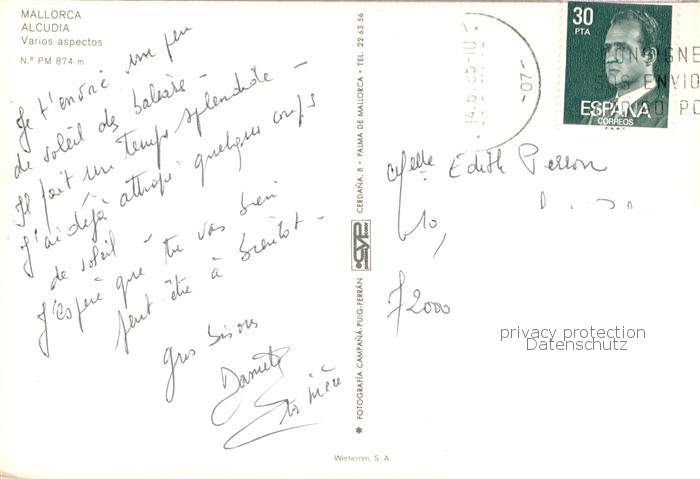 MALLORCA
ALCUDIA
Varios aspectos
N.º PM 874 m
Je t'envoie un peu
de soleil des baléare -
Il fait un temps splendide -
J'ai déjà attrapé quelques coups
de soleil -
J'espère que tu vas bien
peut être à bientôt -
gros bisous
Daniel
✱ FOTOGRAFÍA CAMPAÑÁ-PUIG-FERRÁN
CYP
CERDAÑA, 8 • PALMA DE MALLORCA • TEL. 22 63 56
Werticrom, S. A.
30
PTA
ESPAÑA
CORREOS
F.N.M.T.
14.6.85-10
-07-
CONSIGNE
ENVIO
Melle Edith Perron
10,
72000
privacy protection
Datenschutz